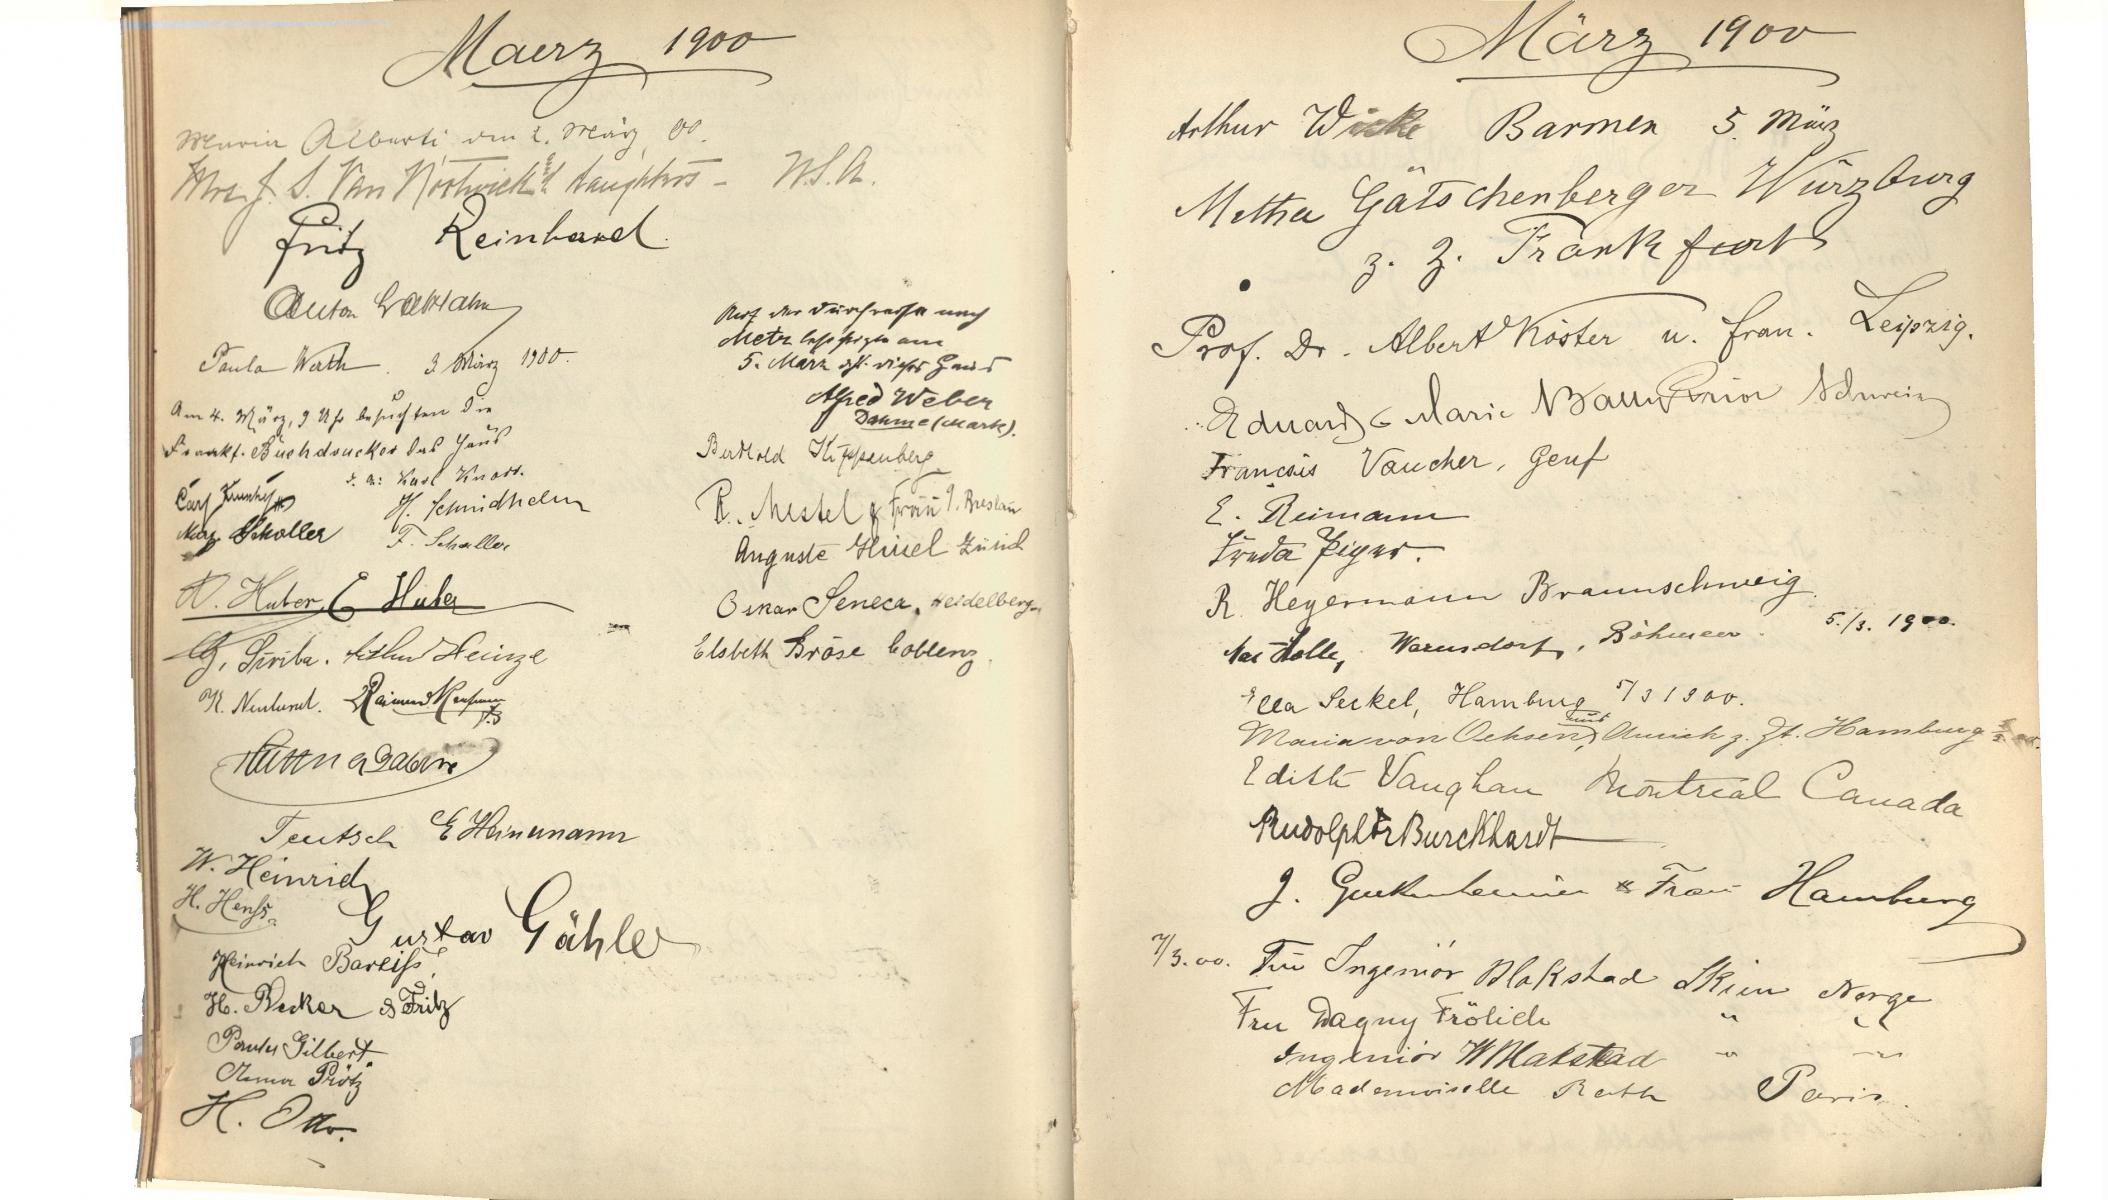 Maerz 1900
Alberti den 2. März 00.
Mrs J. S. Van Nostwick & daughters – U.S.A.
Fritz Reinhard
Anton
Paula Werth. 3. März 1900.
Am 4. März, 9 Uhr besuchten die
Frankf. Buchdrucker das Haus
Karl Knorr.
Carl H. Schmidhelm
Marg. Scholler F. Schaller
Huber, E Huber
G. Arthur Heinze
K.
Teutsch E Heinemann
W. Heinrich
H. Henss
Gustav Gähler
Heinrich Bareiss,
H. Becker & Fritz
Paula Gilbert.
Anna Prötz
H. Otto.
Auf der Durchreise nach
Metz besichtigte am
5. März dieses Haus
Alfred Weber
Dahme (Mark).
Berthold Kippenberg
R. Mestel & Frau Breslau
Auguste Zürich
Oskar Seneca, Heidelberg
Elsbeth Gröse Coblenz
März 1900
Arthur Wicke Barmen 5. März
Metha Gätschenberger Würzburg
z. Z. Frankfurt
Prof. Dr. Albert Köster u. Frau. Leipzig.
Eduard & Marie Schweiz
François Vaucher, Genf
E. Reimann
Freda
R. Heyermann Braunschweig.
Warnsdorf, Böhmen. 5./3. 1900.
Ella Seckel, Hamburg 5/3 1900.
Maria von Ochsen, Aurich z. Zt. Hamburg
Edith Vaughan Montreal Canada
Rudolph Burckhardt
J. & Frau Hamburg
7/3.00. Fru Ingeniör Blakstad Skien Norge
Fru Dagny Frölich " "
Ingeniör Blakstad " "
Mademoiselle Roth Paris.